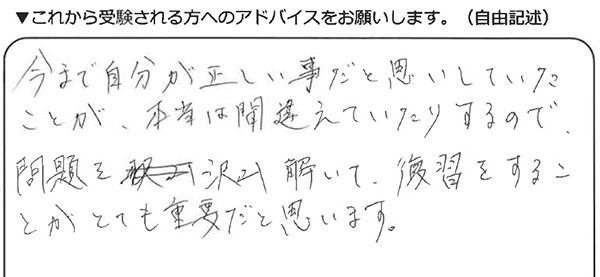 ▼これから受験される方へのアドバイスをお願いします。（自由記述）
今まで自分が正しい事だと思いしていた
ことが、本当は間違えていたりするので、
問題を沢山解いて、復習をするこ
とがとても重要だと思います。